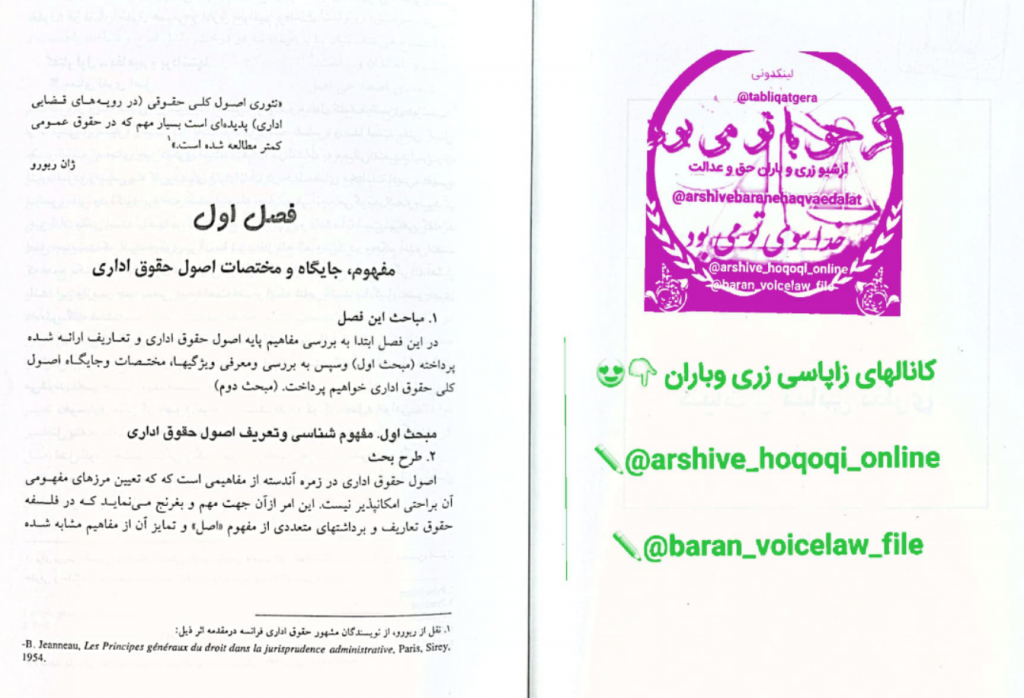 «تئوری اصول کلی حقوقی (در رویه‌های قضایی
اداری) پدیده‌ای است بسیار مهم که در حقوق عمومی
کمتر مطالعه شده است.»¹
ژان ریورو
فصل اول
مفهوم، جایگاه و مختصات اصول حقوق اداری
۱. مباحث این فصل
در این فصل ابتدا به بررسی مفاهیم پایه اصول حقوق اداری و تعاریف ارائه شده
پرداخته (مبحث اول) وسپس به بررسی ومعرفی ویژگیها، مختصات وجایگاه اصول
کلی حقوق اداری خواهیم پرداخت. (مبحث دوم)
مبحث اول. مفهوم شناسی وتعریف اصول حقوق اداری
۲. طرح بحث
اصول حقوق اداری در زمره آندسته از مفاهیمی است که که تعیین مرزهای مفهومی
آن براحتی امکانپذیر نیست. این امر ازآن جهت مهم و بغرنج می‌نماید که در فلسفه
حقوق تعاریف و برداشتهای متعددی از مفهوم «اصل» و تمایز آن از مفاهیم مشابه شده
۱. نقل از ریورو، از نویسندگان مشهور حقوق اداری فرانسه درمقدمه اثر ذیل:
-B. Jeanneau, Les Principes généraux du droit dans la jurisprudence administrative, Paris, Sirey,
1954.
لینکدونی
@tabliqatgera
گر حق با تو می بود
ارشیو زری و باران حق و عدالت
@arshivebaranehaqvaedalat
خدا سوی تو می بود
@arshive_hoqoqi_online
@baran_voicelaw_file
کانالهای زاپاسی زری وباران 👇😍
✏@arshive_hoqoqi_online
✏@baran_voicelaw_file